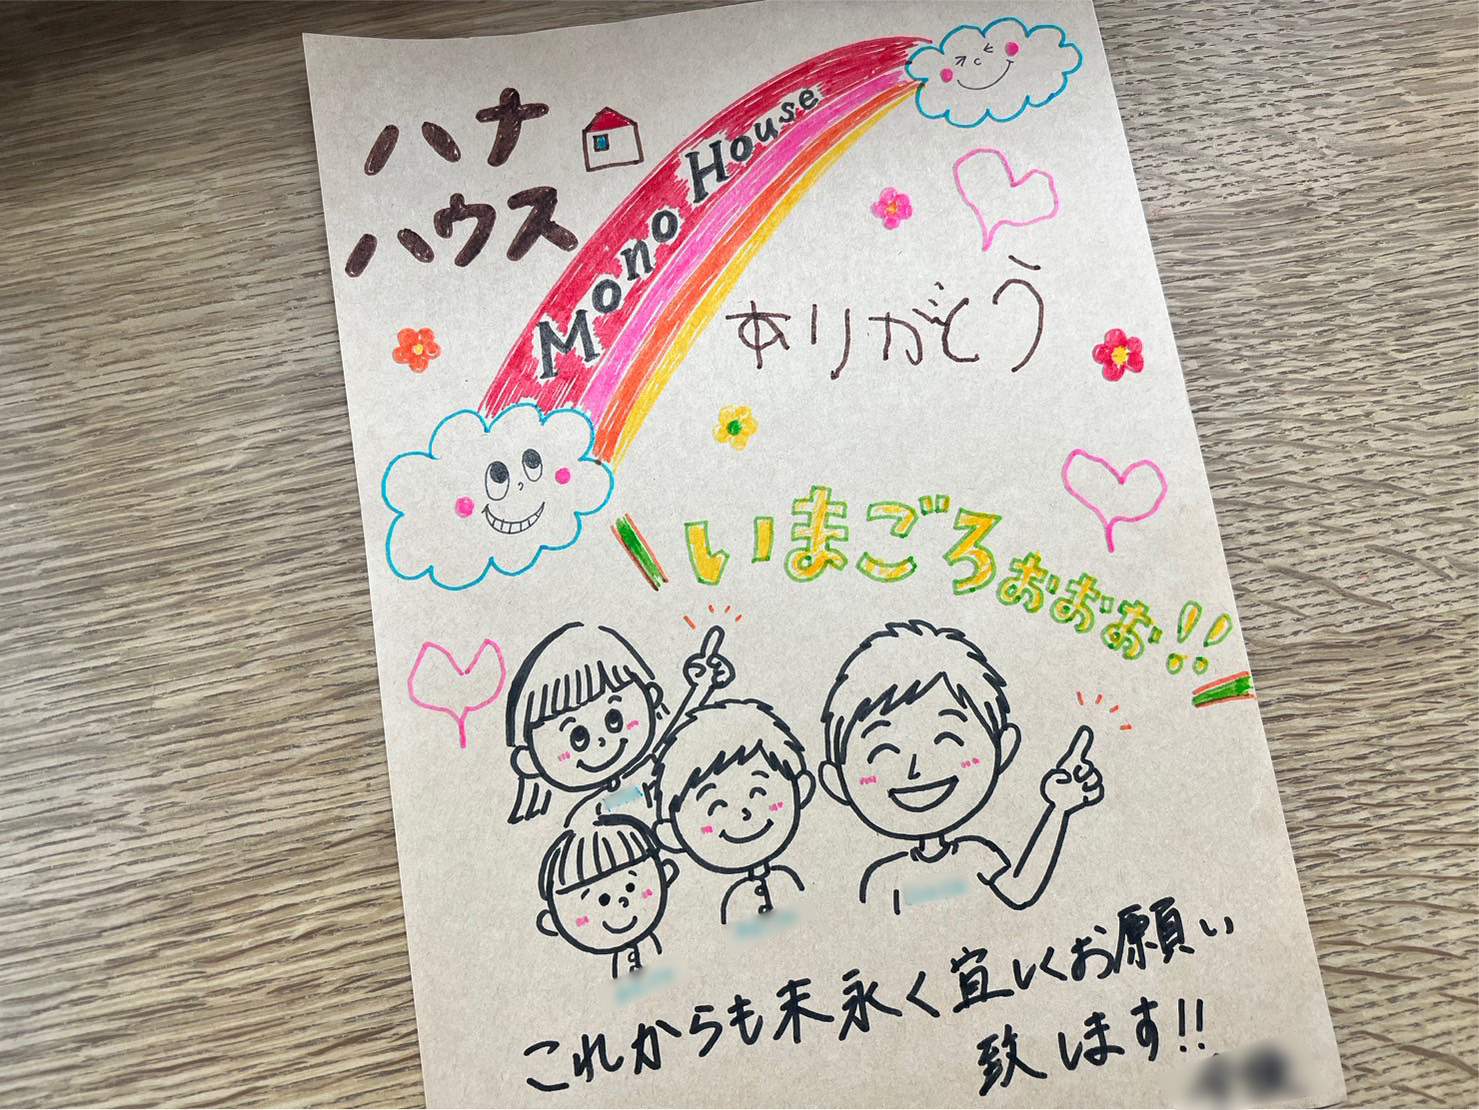 ハナ
ハウス
Mono House
ありがとう
いまごろぉぉぉ!!
これからも末永く宜しくお願い
致します!!